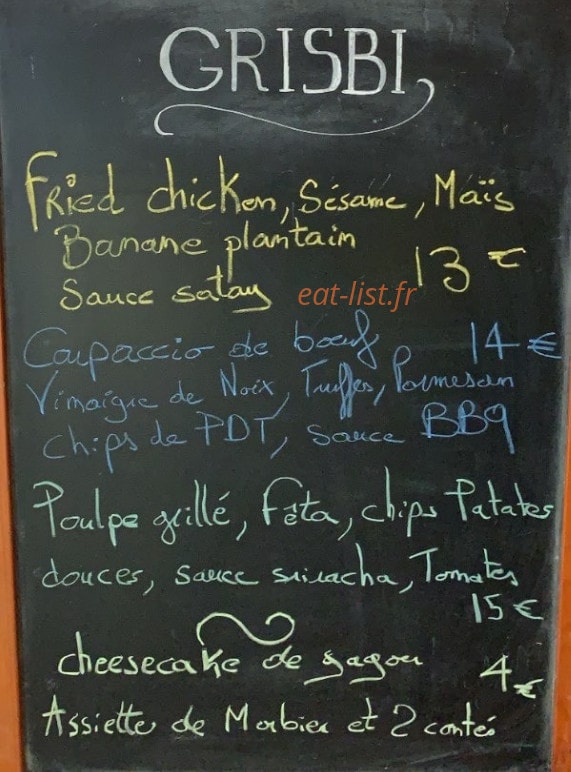 GRISBI
Fried chicken, Sésame, Maïs
Banane plantain
13 €
Sauce satay
eat-list.fr
Carpaccio de bœuf 14 €
Vinaigre de Noix, Truffes, Parmesan
chips de PDT, sauce BBQ
Poulpe grillé, Fêta, chips Patates
douces, sauce sriracha, Tomates
15 €
cheesecake de gagou 4 €
Assiette de Morbier et 2 contés